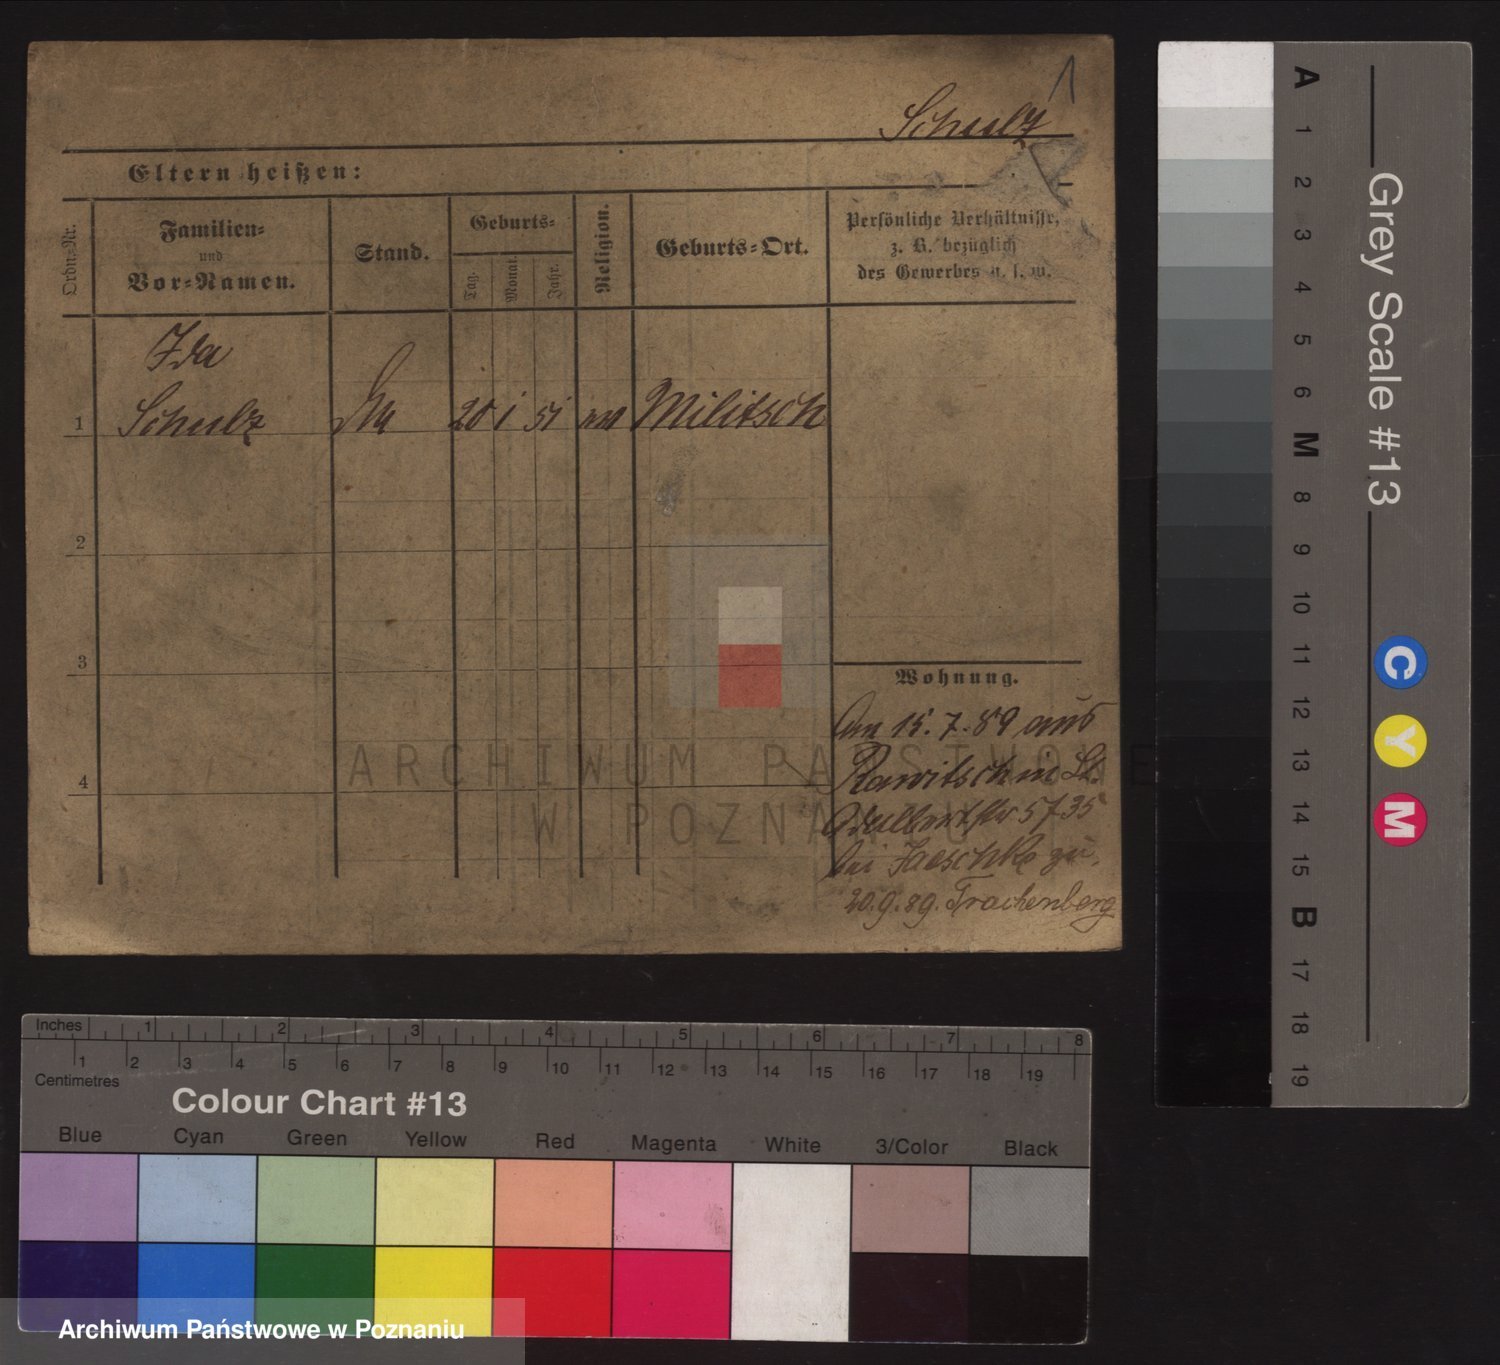 1
Schulz
Eltern heißen:
Ordn.-Nr.
Familien-
und
Vor-Namen.
Stand.
Geburts-
Tag.
Monat.
Jahr.
Religion.
Geburts-Ort.
Persönliche Verhältnisse,
z. B. bezüglich
des Gewerbes u. s. w.
Ida
1 Schulz 20 1 51 Militsch
2
3
4
Wohnung.
Am 15.7.89 aus
Rawitsch
Adalbertstr 5 / 35
bei Jaeschke zu
20.9.89. Trachenberg
ARCHIWUM PAŃSTWOWE
W POZNANIU
Grey Scale #13
A 1 2 3 4 5 6 M 8 9 10 11 12 13 14 15 B 17 18 19
C Y M
Inches 1 2 3 4 5 6 7 8
1 2 3 4 5 6 7 8 9 10 11 12 13 14 15 16 17 18 19
Centimetres
Colour Chart #13
Blue Cyan Green Yellow Red Magenta White 3/Color Black
Archiwum Państwowe w Poznaniu